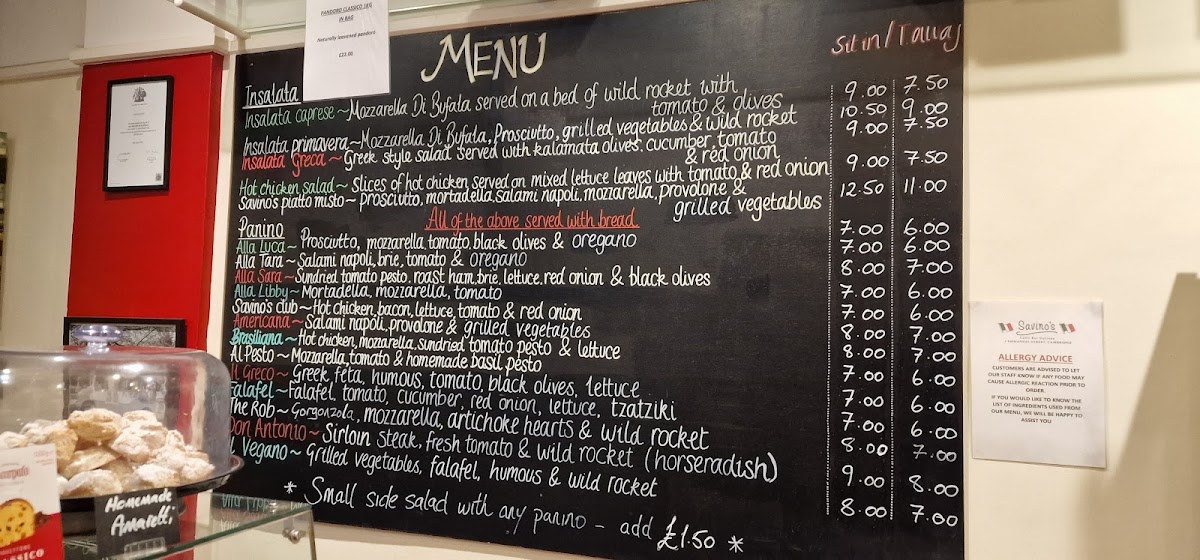 PANDORO CLASSICO 1KG
IN BAG
Naturally leavened pandoro
£22.00
MENU
Sit in / Takeaway
Insalata
Insalata caprese ~ Mozzarella Di Bufala served on a bed of wild rocket with 9.00 7.50
tomato & olives
Insalata primavera ~ Mozzarella Di Bufala, Prosciutto, grilled vegetables & wild rocket 10.50 9.00
Insalata Greca ~ Greek style salad served with kalamata olives, cucumber, tomato 9.00 7.50
& red onion
Hot chicken salad ~ Slices of hot chicken served on mixed lettuce leaves with tomato & red onion 9.00 7.50
Savino's piatto misto ~ prosciutto, mortadella, salami napoli, mozzarella, provolone & 12.50 11.00
grilled vegetables
All of the above served with bread
Panino
Alla Luca ~ Prosciutto, mozzarella, tomato, black olives & oregano 7.00 6.00
Alla Tara ~ Salami napoli, brie, tomato & oregano 7.00 6.00
Alla Sara ~ Sundried tomato pesto, roast ham, brie, lettuce, red onion & black olives 8.00 7.00
Alla Libby ~ Mortadella, mozzarella, tomato 7.00 6.00
Savino's club ~ Hot chicken, bacon, lettuce, tomato & red onion 7.00 6.00
Americana ~ Salami napoli, provolone & grilled vegetables 8.00 7.00
Brasiliana ~ Hot chicken, mozzarella, sundried tomato pesto & lettuce 8.00 7.00
Al Pesto ~ Mozzarella, tomato & homemade basil pesto 7.00 6.00
Il Greco ~ Greek feta, humous, tomato, black olives, lettuce 7.00 6.00
Falafel ~ Falafel, tomato, cucumber, red onion, lettuce, tzatziki 7.00 6.00
The Rob ~ Gorgonzola, mozzarella, artichoke hearts & wild rocket 8.00 7.00
Don Antonio ~ Sirloin steak, fresh tomato & wild rocket (horseradish) 9.00 8.00
Il Vegano ~ Grilled vegetables, falafel, humous & wild rocket 8.00 7.00
* Small side salad with any panino - add £1.50 *
Savino's
ALLERGY ADVICE
CUSTOMERS ARE ADVISED TO LET
OUR STAFF KNOW IF ANY FOOD MAY
CAUSE ALLERGIC REACTION PRIOR TO
ORDER.
IF YOU WOULD LIKE TO KNOW THE
LIST OF INGREDIENTS USED FROM
OUR MENU, WE WILL BE HAPPY TO
ASSIST YOU
Homemade
Amaretti